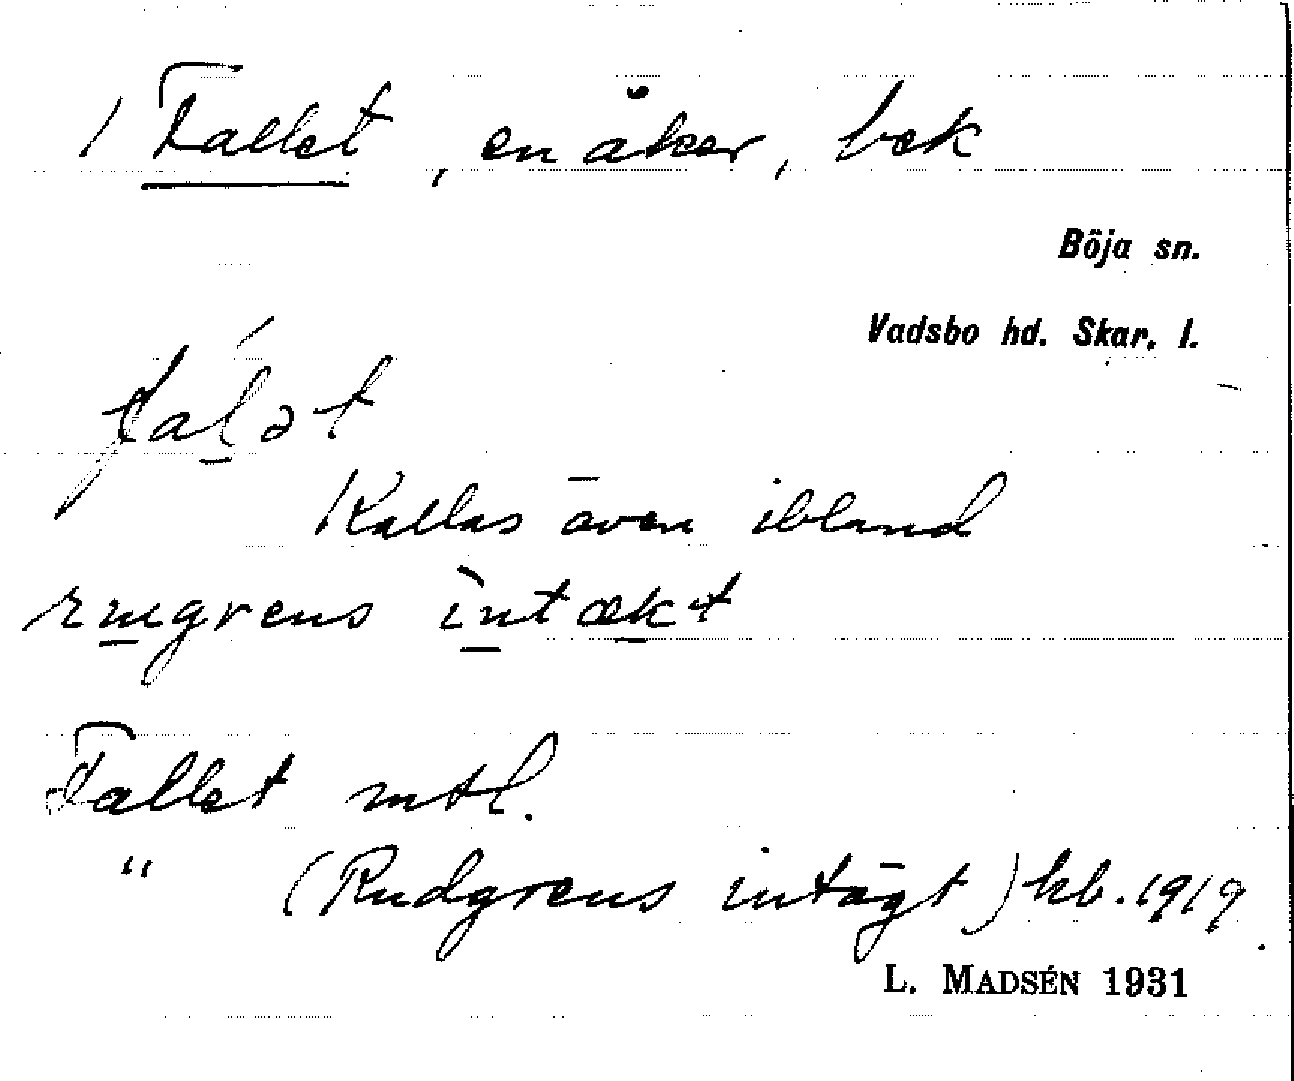 1 Fallet, en åker, bek
Böja sn.
Vadsbo hd. Skar. l.
fálət
Kallas även ibland
rmgrens ìntækt
Fallet mtl.
" (Rudgrens intägt) kb. 1919.
L. MADSÉN 1931